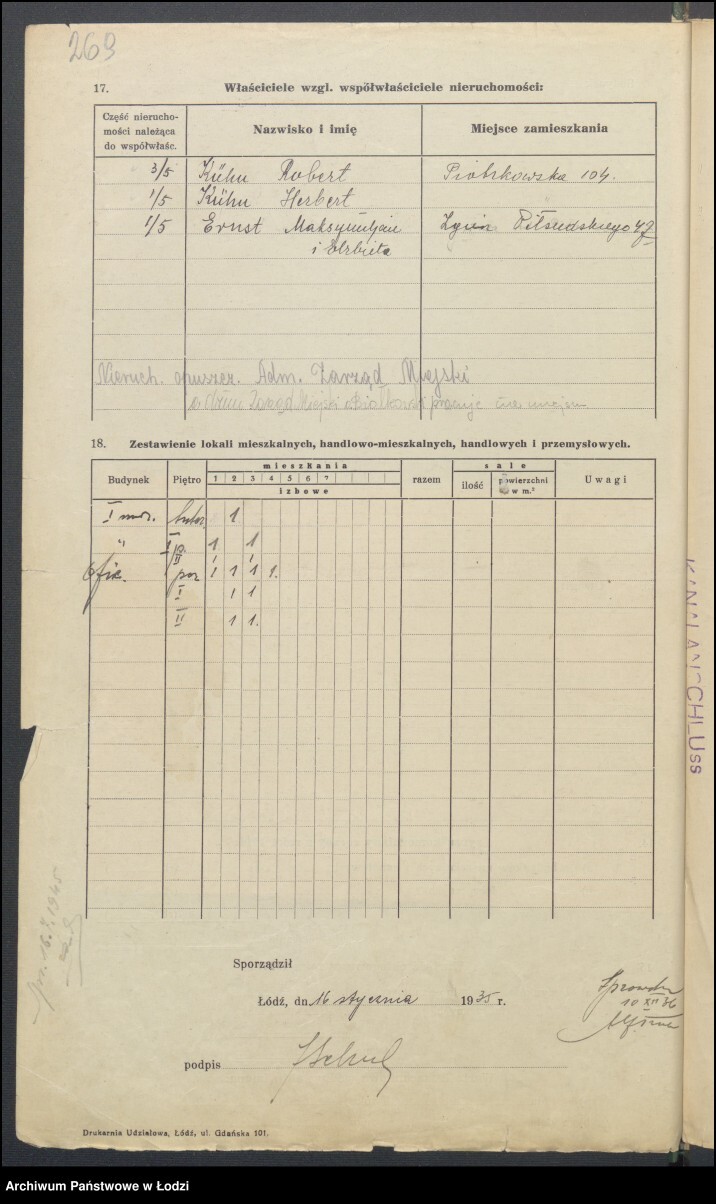 269
17. Właściciele wzgl. współwłaściciele nieruchomości:
Część nierucho-
mości należąca
do współwłaśc.
Nazwisko i imię
Miejsce zamieszkania
3/5 Kühn Robert Piotrkowska 104.
1/5 Kühn Herbert
1/5 Ernst Maksymiljan Piłsudskiego
i Elżbieta
Nieruch. opuszcz. Adm. Zarząd Miejski
Zarząd Miejski
18. Zestawienie lokali mieszkalnych, handlowo-mieszkalnych, handlowych i przemysłowych.
Budynek Piętro mieszkania razem sale Uwagi
1 2 3 4 5 6 7 ilość powierzchni
w m.²
izbowe
I 1
" I p. 1 1
II 1 1
Ofic. par 1 1 1 1.
I 1 1
II 1 1.
KANALANSCHLUSS
1945
Sporządził
Łódź, dn. 16 stycznia 1935 r.
10 XII 36
podpis
Drukarnia Udziałowa, Łódź, ul. Gdańska 101.
Archiwum Państwowe w Łodzi